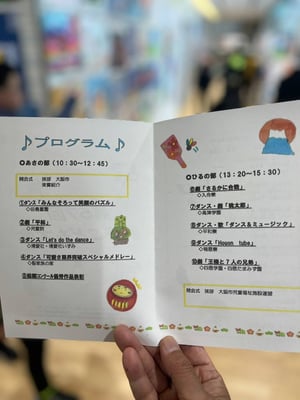 ♪プログラム♪
○あさの部（10：30〜12：45）
開会式　挨拶　大阪市
来賓紹介
①ダンス「みんなそろって笑顔のパズル」
②劇「平和」
③ダンス「Let's do the dance」
④ダンス「可愛さ限界突破スペシャルメドレー」
○ひるの部（13：20〜15：30）
⑥劇「さるかに合戦」
⑦ダンス・劇「桃太郎」
◇高津学園
⑧ダンス・歌「ダンス＆ミュージック」
◇平和寮
⑨ダンス「Houon　tube」
⑩劇「王様と7人の兄弟」
閉会式　挨拶　大阪市児童福祉施設連盟